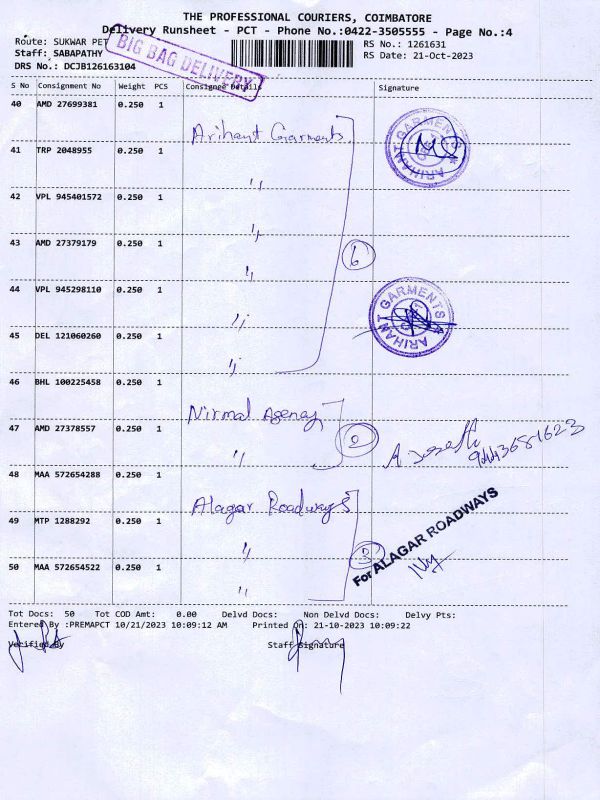 THE PROFESSIONAL COURIERS, COIMBATORE
Delivery Runsheet - PCT - Phone No.:0422-3505555 - Page No.:4
Route: SUKWAR PET
RS No.: 1261631
Staff: SABAPATHY
RS Date: 21-Oct-2023
DRS No.: DCJB126163104
BIG BAG DELIVERY
S No Consignment No Weight PCS Consignee Details Signature
40 AMD 27699381 0.250 1
Arihant Garments
ARIHANT GARMENTS
41 TRP 2048955 0.250 1
"
42 VPL 945401572 0.250 1
"
43 AMD 27379179 0.250 1
"
6
44 VPL 945298110 0.250 1
"
ARIHANT GARMENTS
45 DEL 121060260 0.250 1
"
46 BHL 100225458 0.250 1
Nirmal Agency
47 AMD 27378557 0.250 1
"
2
48 MAA 572654288 0.250 1
Alagar Roadways
49 MTP 1288292 0.250 1
"
3
For ALAGAR ROADWAYS
50 MAA 572654522 0.250 1
"
Tot Docs: 50 Tot COD Amt: 0.00 Delvd Docs: Non Delvd Docs: Delvy Pts:
Entered By :PREMAPCT 10/21/2023 10:09:12 AM Printed On: 21-10-2023 10:09:22
Verified By Staff Signature